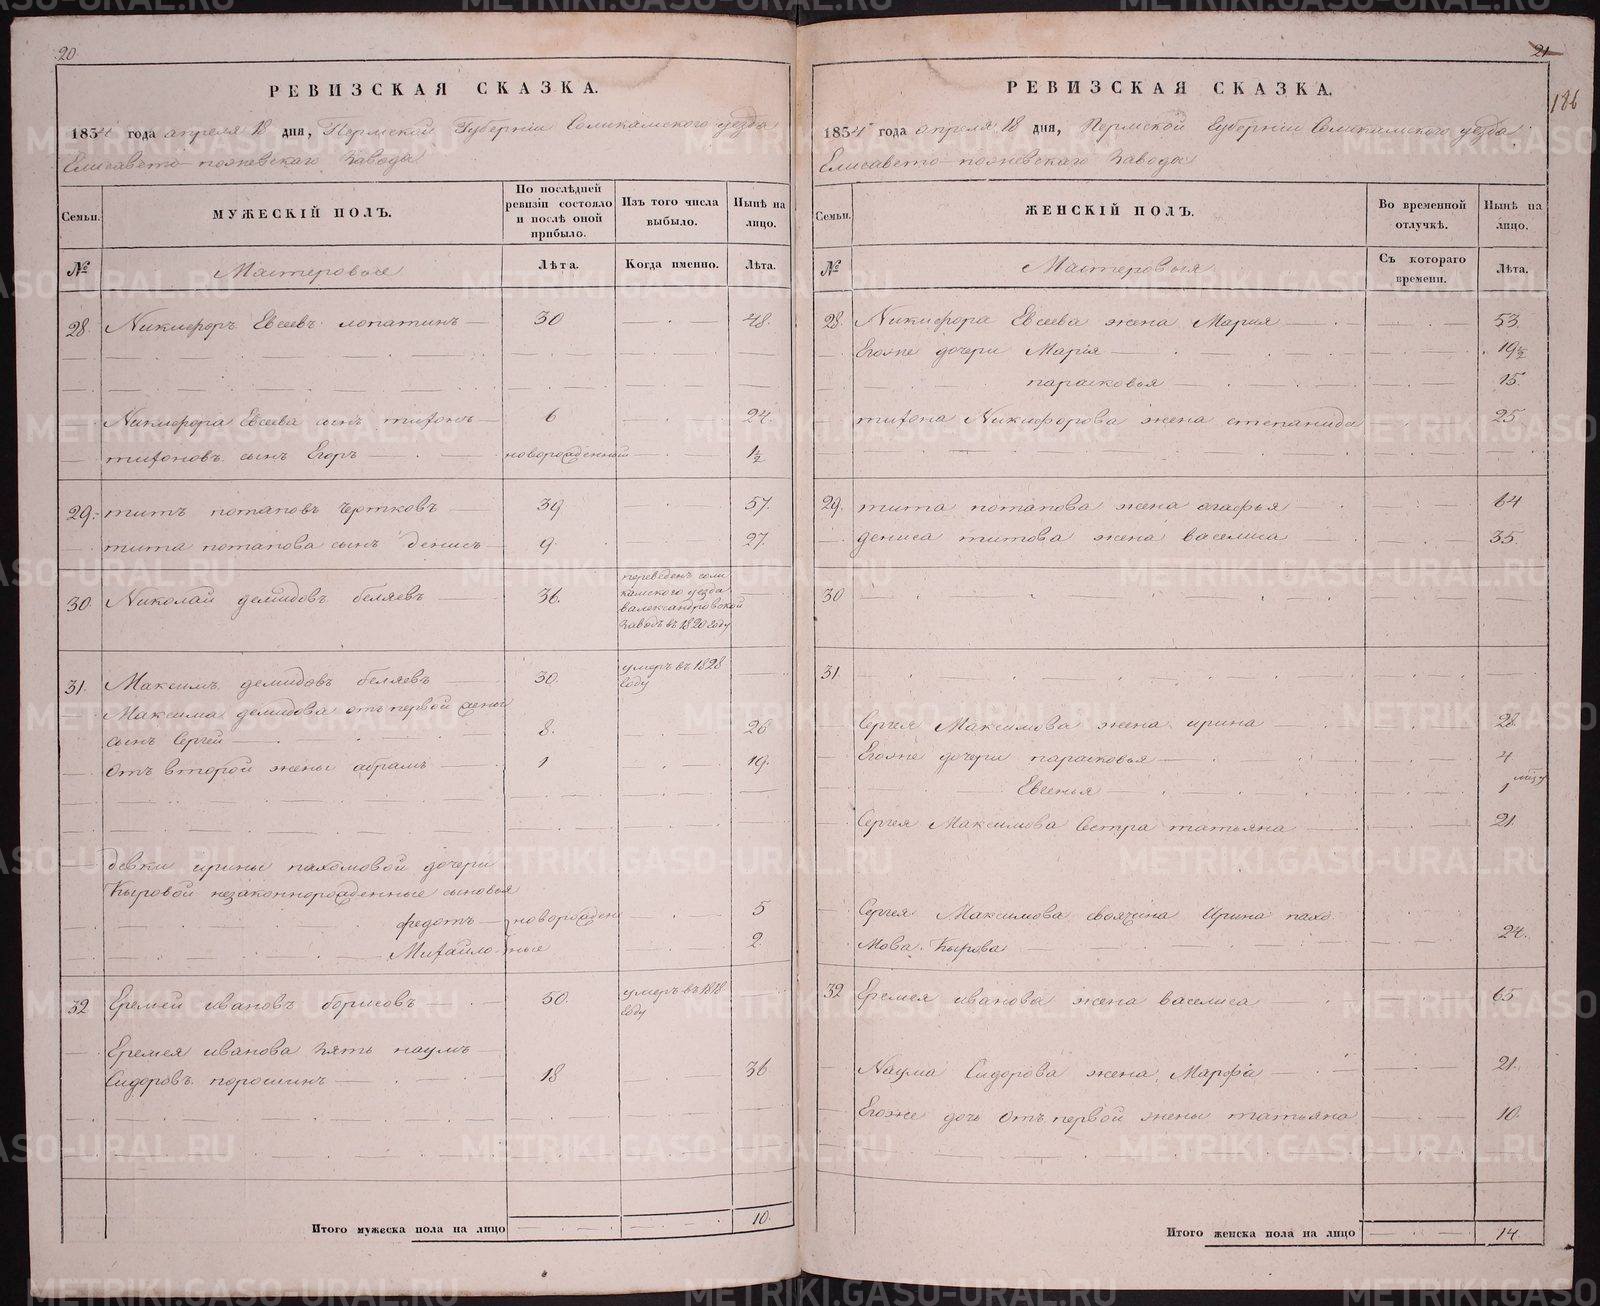 20.
РЕВИЗСКАЯ СКАЗКА.
1834 года апреля 18 дня, Пермской Губернiи Соликамского уезда
Елисавето-пожевскаго Завода
Семьи.
МУЖЕСКIЙ ПОЛЪ.
По послѣдней ревизiи состояло и послѣ оной прибыло.
Изъ того числа выбыло.
Нынѣ на лицо.
№
Мастеровые
Лѣта.
Когда именно.
Лѣта.
28. Никифоръ Евсеевъ лопатинъ 30 48.
Никифора Евсеева сынъ тихонъ 6 24
тихоновъ сынъ Егоръ новорожденный 1½
29. титъ потаповъ Чертковъ 39 57.
тита потапова сынъ денисъ 9. 27.
30. Николай демидовъ беляевъ 36.
переведенъ соли
камского уезда
валександровской
заводъ въ 1820 году
31. Максимъ демидовъ беляевъ 30.
умеръ въ 1828
году
Максима демидова отъ первой жены
сынъ Сергей 8. 26
Отъ второй жены абрамъ 1 19.
девки ирины пахомовой дочери
Кыровой незаконнорожденные сыновья
федотъ новорожден 5
Михайло ные 2.
32 Еремей ивановъ борисовъ 50.
умеръ въ 1818
году
Еремея иванова зять наумъ
Сидоровъ порошинъ 18 36
Итого мужеска пола на лицо 10
21
186
РЕВИЗСКАЯ СКАЗКА.
1834 года апреля 18 дня, Пермской Губернiи Соликамского уезда
Елисавето-пожевскаго Завода
Семьи.
ЖЕНСКIЙ ПОЛЪ.
Во временной отлучкѣ.
Нынѣ на лицо.
№
Мастеровыя
Съ котораго времени.
Лѣта.
28. Никифора Евсеева жена Мария 53.
Егоже дочери Марiя 19½
парасковья 15.
тихона Никифорова жена степанида 25
29. тита потапова жена агафья 64
дениса титова жена васелиса 35.
30
31.
Сергея Максимова жена ирина 28.
Егоже дочери парасковья 4
Евсенья 1
Сергея Максимова Сестра татьяна 21.
Сергея Максимова своячина Ирина пахо
мова Кырова 24.
32 Еремея иванова жена васелиса 65
Наума Сидорова жена Марфа 21.
Егоже дочь отъ первой жены татьяна 10.
Итого женска пола на лицо 14.
METRIKI.GASO-URAL.RU